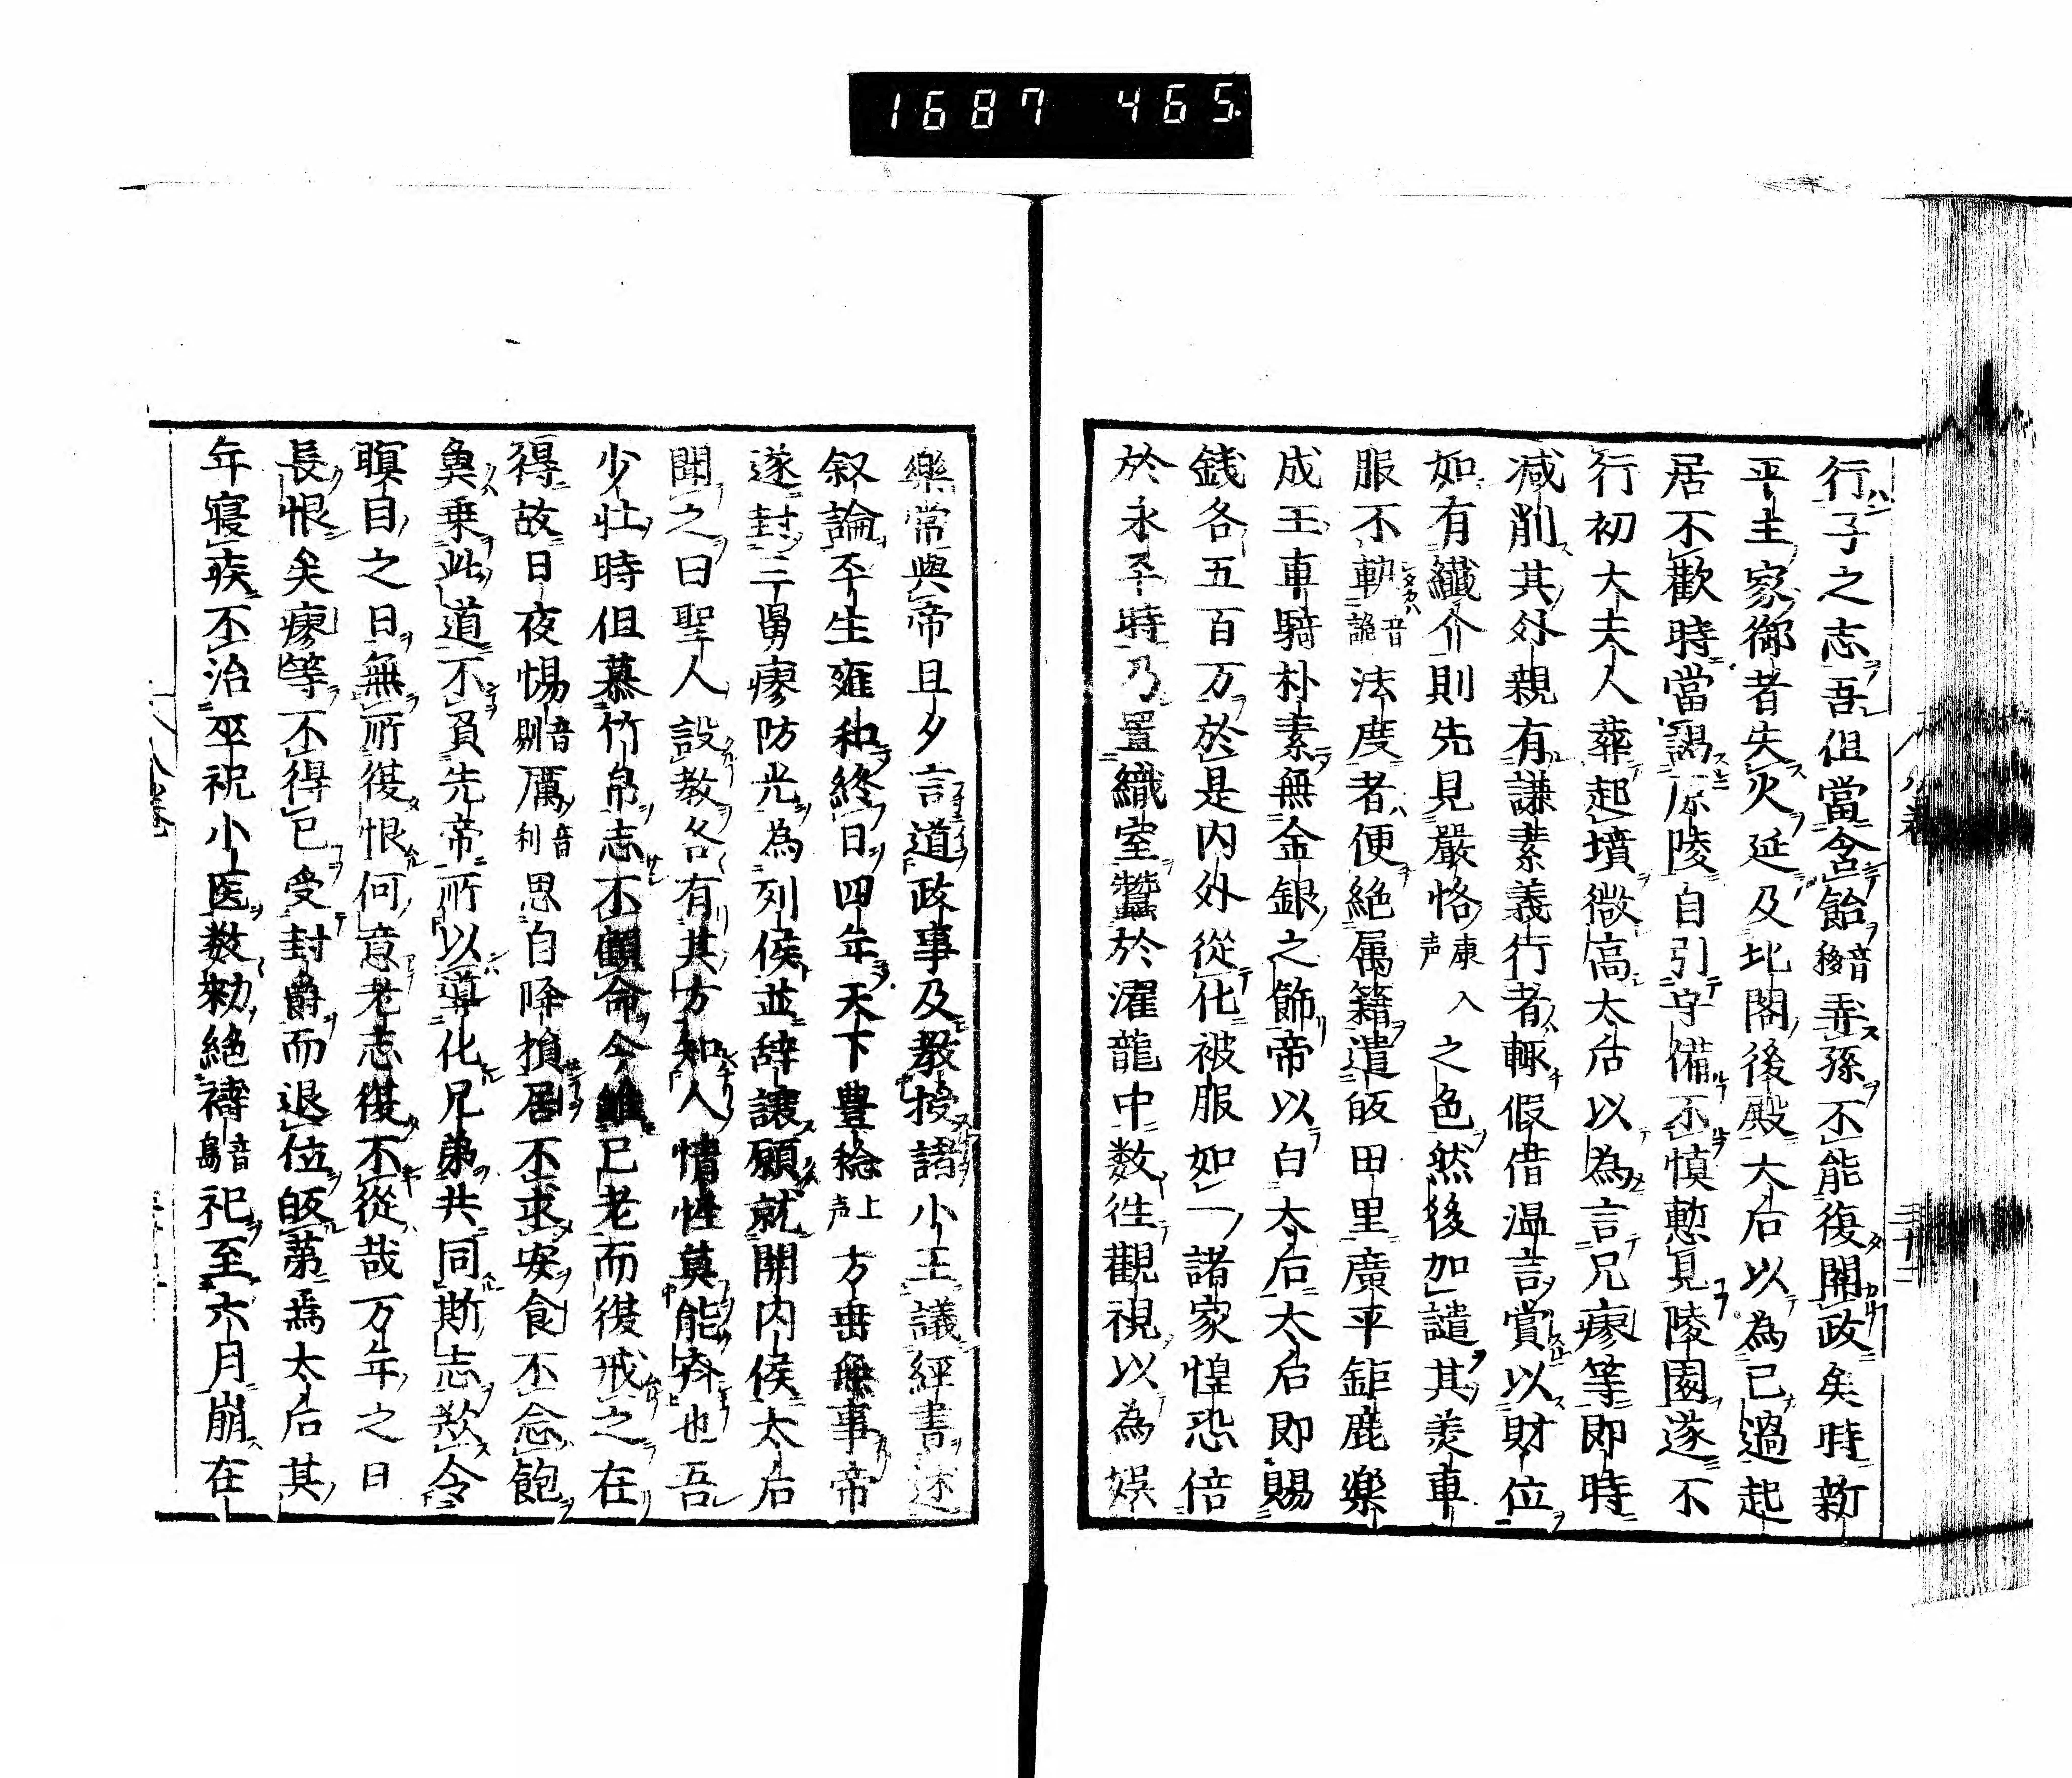 1687 465
行子之志吾但當含飴音移弄孫不能復関政矣時新
平主家御者失火延及北閣後殿太后以為己過起
居不歡時當謁原陵自引守備不慎慙見陵園遂不
行初大夫人葬起墳微高太后以為言兄廖等即時
减削其外親有謙素義行者輙假借温言賞以財位
如有纖介則先見嚴恪康入声之色然後加譴其羙車
服不軌音詭法度者便絶属籍遣皈田里廣平鉅鹿樂
成王車騎朴素無金銀之飾帝以白太后太后即賜
銭各五百万於是内外從化被服如一諸家惶恐倍
於永平時乃置織室蠶於濯龍中数徃觀視以為娯
樂常與帝旦夕言道政事及教授諸小王議經書述
叙論平生雍和終日四年天下豊稔上声方垂無事帝
遂封三舅廖防光為列侯並辞讓願就関内侯太后
聞之曰聖人設教各有其方知人情性莫能齊也吾
少壮時但慕竹帛志不顧命今雖已老而復戒之在
得故日夜惕音剔厲音利思自降損居不求安食不念飽
兾乗此道不負先帝所以導化兄弟共同斯志欺令
瞑目之日無所復恨何意老志復不從哉万年之日
長恨矣廖等不得已受封爵而退位皈第焉太后其
年寝疾不治巫祝小医数勑絶禱音島祀至六月崩在